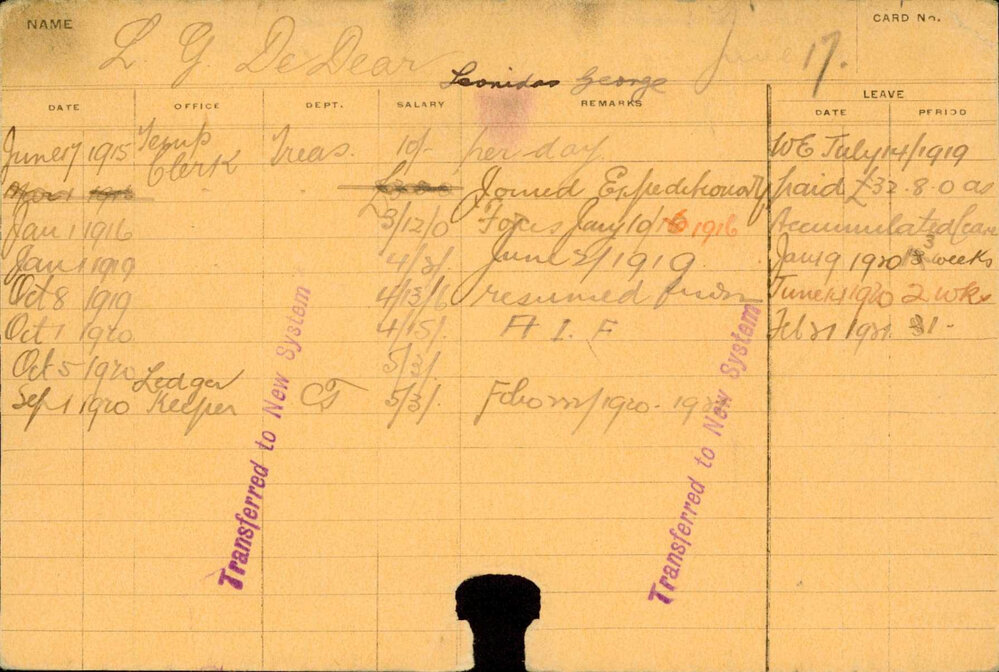 NAME
CARD No.
L G DeDear
Leonidas George
June 17.
DATE OFFICE DEPT. SALARY REMARKS LEAVE
DATE PERIOD
June 17 1915 Temp Clerk Treas. 10/- per day WE July 14/1919
Joined Expeditionary paid £32.8.0 as
Jan 1 1916 3/12/0 Forces Jany 10/16 1916 Accumulated
Jan 1 1919 4/2/ June 2/1919 Jan 9 1920 3 weeks
Oct 8 1919 4/13/ resumed from June 1920 2 wks
Oct 1 1920 4/15/. A I F Feb 21 1921
Oct 5 1920 5/
Sept 1 1920 Ledger Keeper CT 5/5/. 1920.
Transferred to New System
Transferred to New System